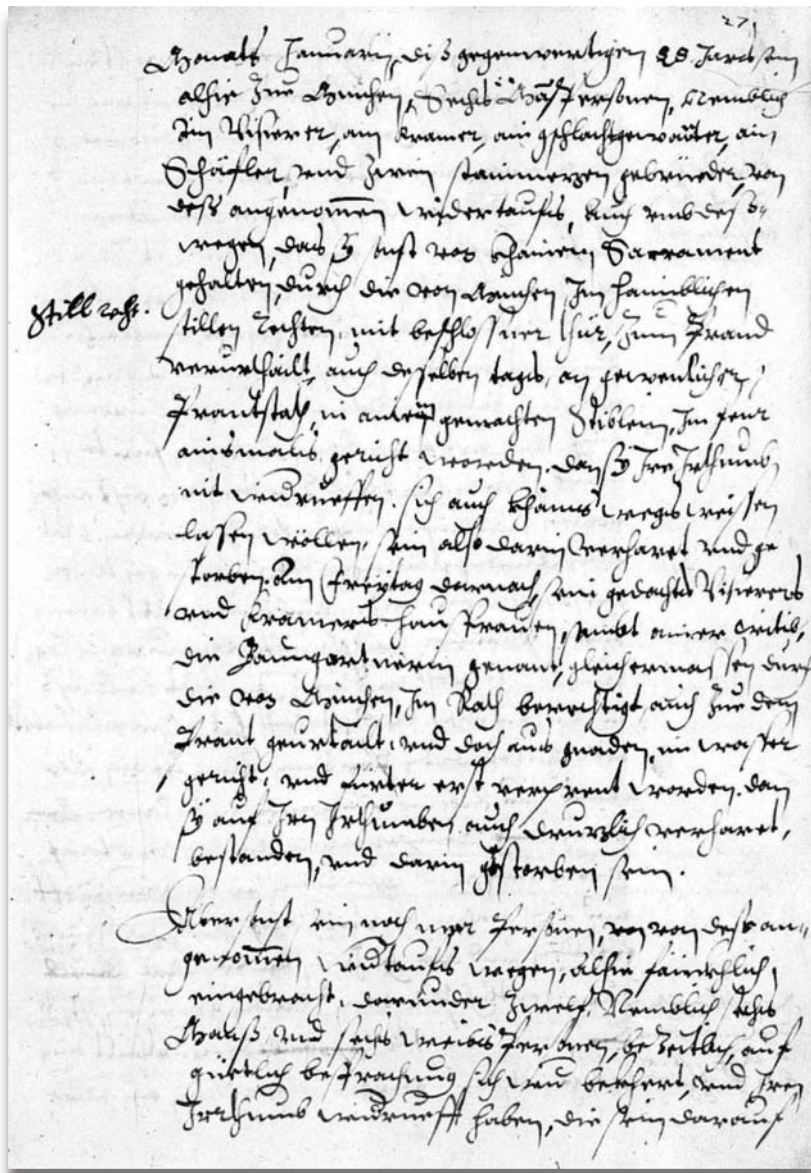 27
Monats Januarii, diß gegenwertigen 28. Jars sein
alhie zue München, Sechs Manß Personen, Nemblich
Ain Visierer, ain Kramer, ain gschlachtgewanter, ain
Schäfler, und zwen stainmezen gebrüeder, von
dess angenomen widertaufs, auch umb dess
wegen, das sy sonst von khainem Sacrament
gehalten, durch die von München, Im haimblichen
Still recht.
stillen Rechten, mit beschlossner thür, zum Prand
verurthailt, auch desselben tags, an gewenlicher
Prantstath, in ainem gemachten Stiblein, Im feur
ainsmals gericht worden. dan sy Irn Irthumb
nit widrueffen. sich auch khains wegs weissen
lassen wöllen, sein also darin verharet und ge
storben. Am Freytag darnach, sein gedachts Visierers
und Kramers hausfrauen, sambt ainer
die Baumgartnerin genant, gleichermassen durch
die von München, Im Rath berechtigt auch zue dem
Prant geurtailt, und doch aus gnaden, im wasser
gericht, und fürter erst verprent worden. dan
sy auf Irn Irthumben auch verharet,
bestanden, und darin gestorben sein.
Aber sonst ein noch mer Personen, von dess an
genomen widtaufs wegen, alhie fänckhlich
eingebracht, darunder zwelf, Nemblich sechs
Manß und sechs weibs Personen, bey zeitlich, auf
güetlich besprachung sich bekhert, und Iren
Irthumb widrueft haben, die sein darauf